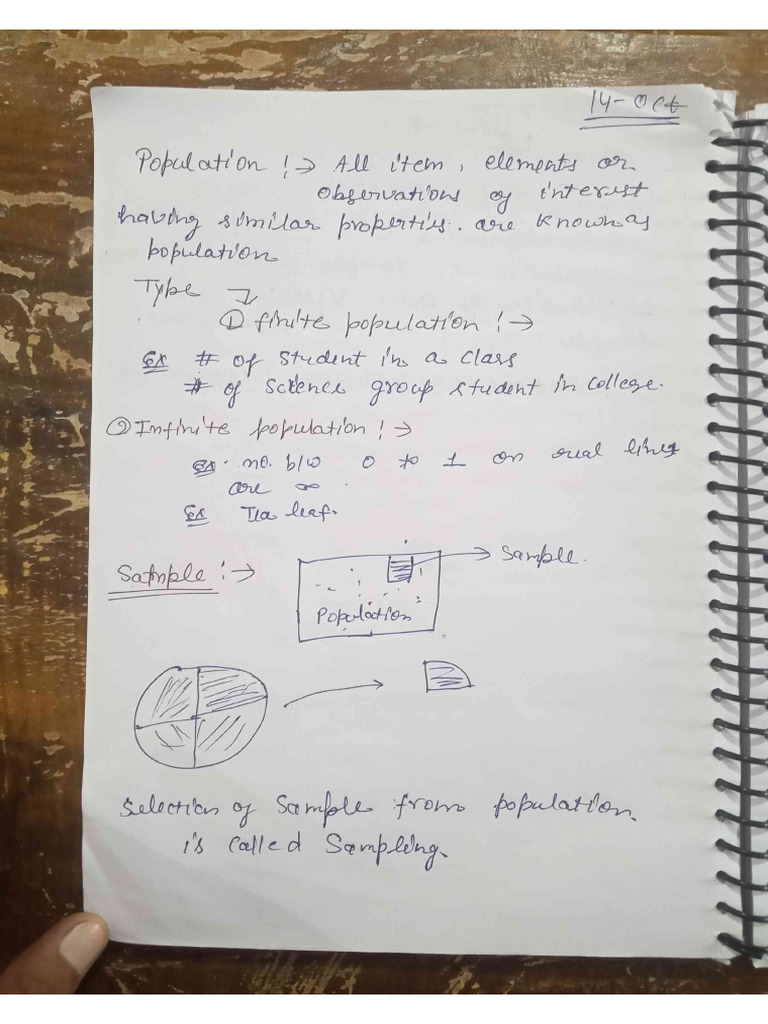 14-Oct
Population :→ All item, elements or
observations of interest
having similar properties. are known as
population
Type
① finite population :→
Ex # of student in a class
# of science group student in college.
② Infinite population :→
ex. no. b/w 0 to 1 on real lines
are ∞.
Ex Tea leaf.
Sample :→
→ Sample.
Population
Selection of Sample from population.
is called Sampling.